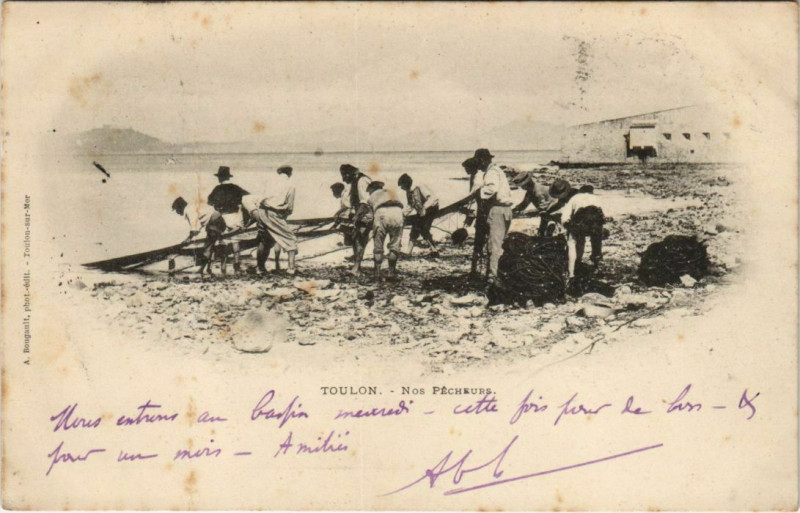 A. Bougault, phot.-édit. - Toulon-sur-Mer
TOULON. - Nos Pêcheurs.
Nous entrons au bassin mercredi - cette fois pour de bon - &
pour un mois - Amitiés